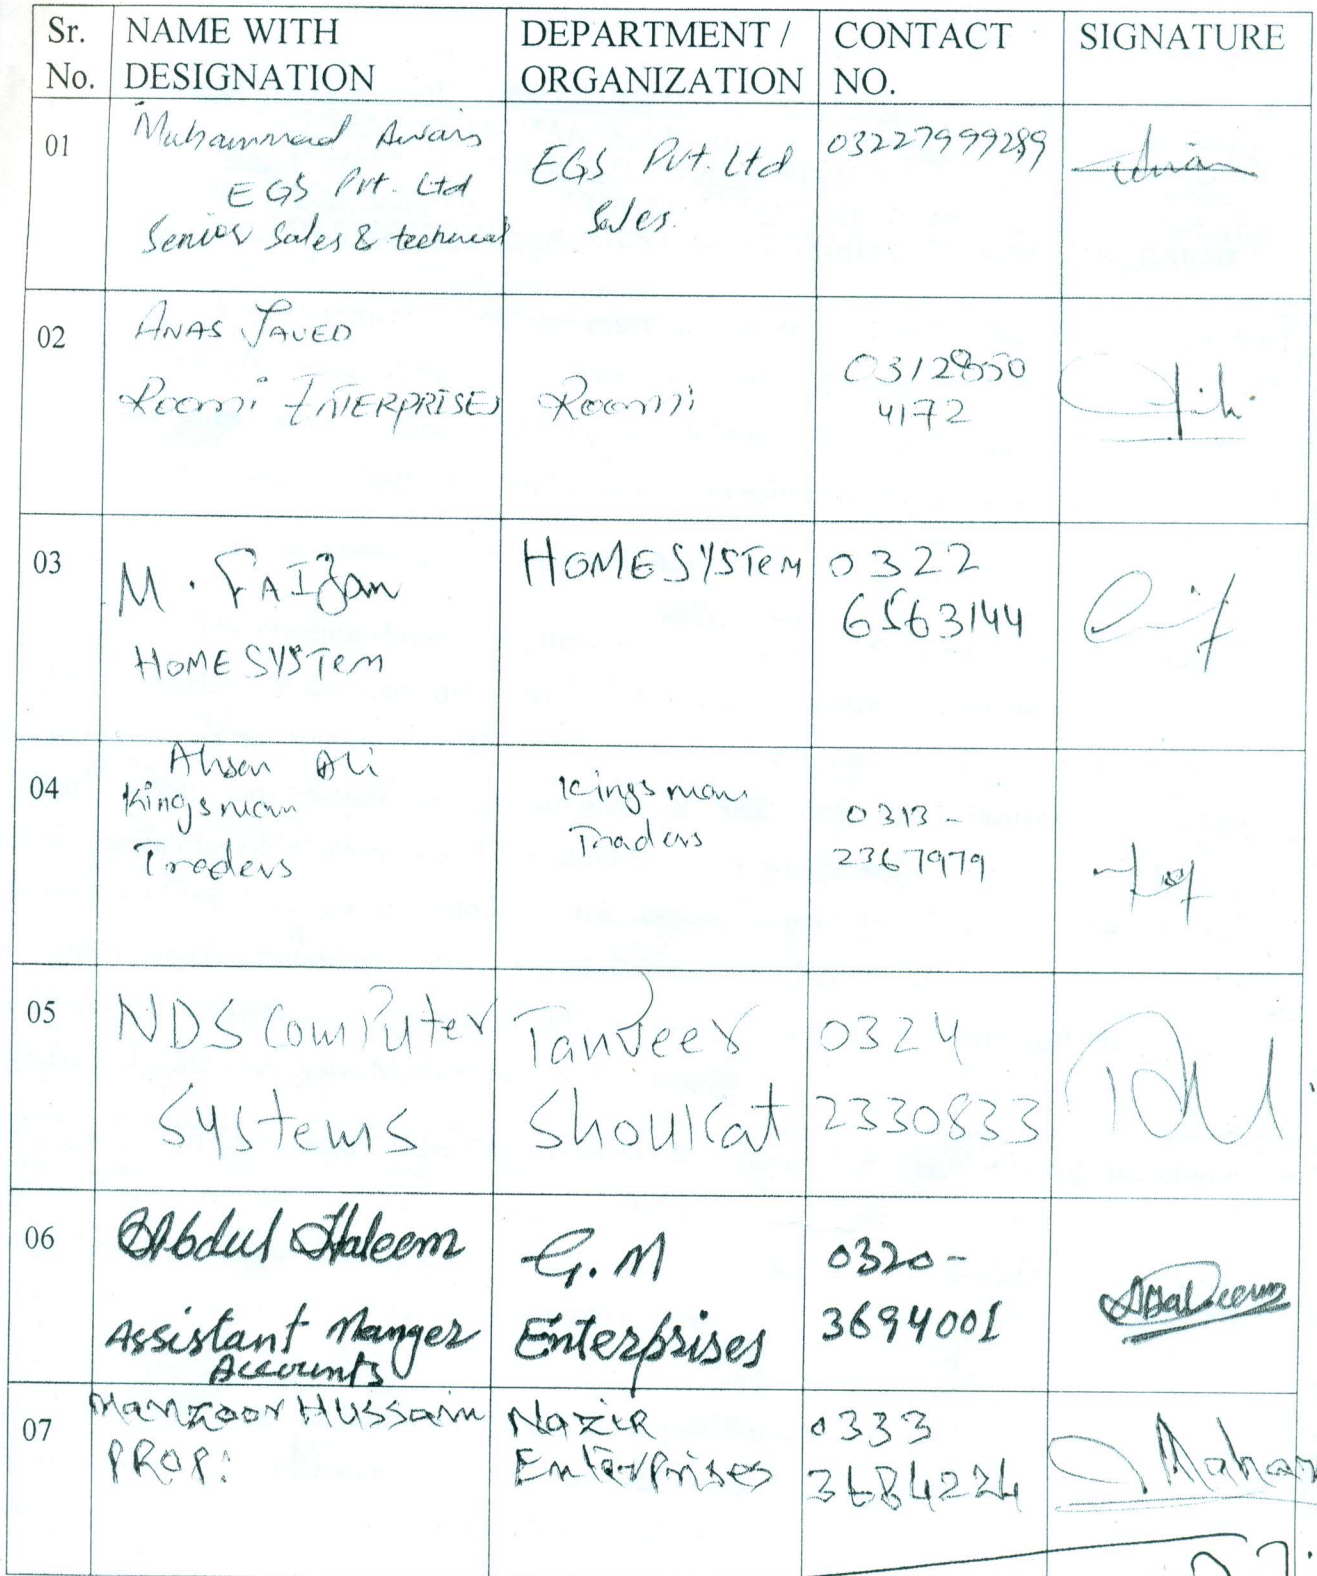 Sr. No.
NAME WITH DESIGNATION
DEPARTMENT / ORGANIZATION
CONTACT NO.
SIGNATURE
01
Muhammad Awais
EGS Pvt. Ltd
Senior Sales & technical
EGS Pvt. Ltd
Sales.
03227999289
02
ANAS JAVED
Roomi ENTERPRISES
Roomi
0312850
4172
03
M. FAIZan
HOMESYSTem
HOMESYSTem
0322
6563144
04
Ahsan Ali
Kingsman
Traders
Kingsman
Traders
0313-
2367979
05
NDS ComPuter
Systems
Tanveer
Shoukat
0324
2330833
06
Abdul Haleem
Assistant Manger
Accounts
G.M
Enterprises
0320-
3694001
AHaleem
07
Manzoor Hussain
PROP:
Nazir
Enterprises
0333
3684224